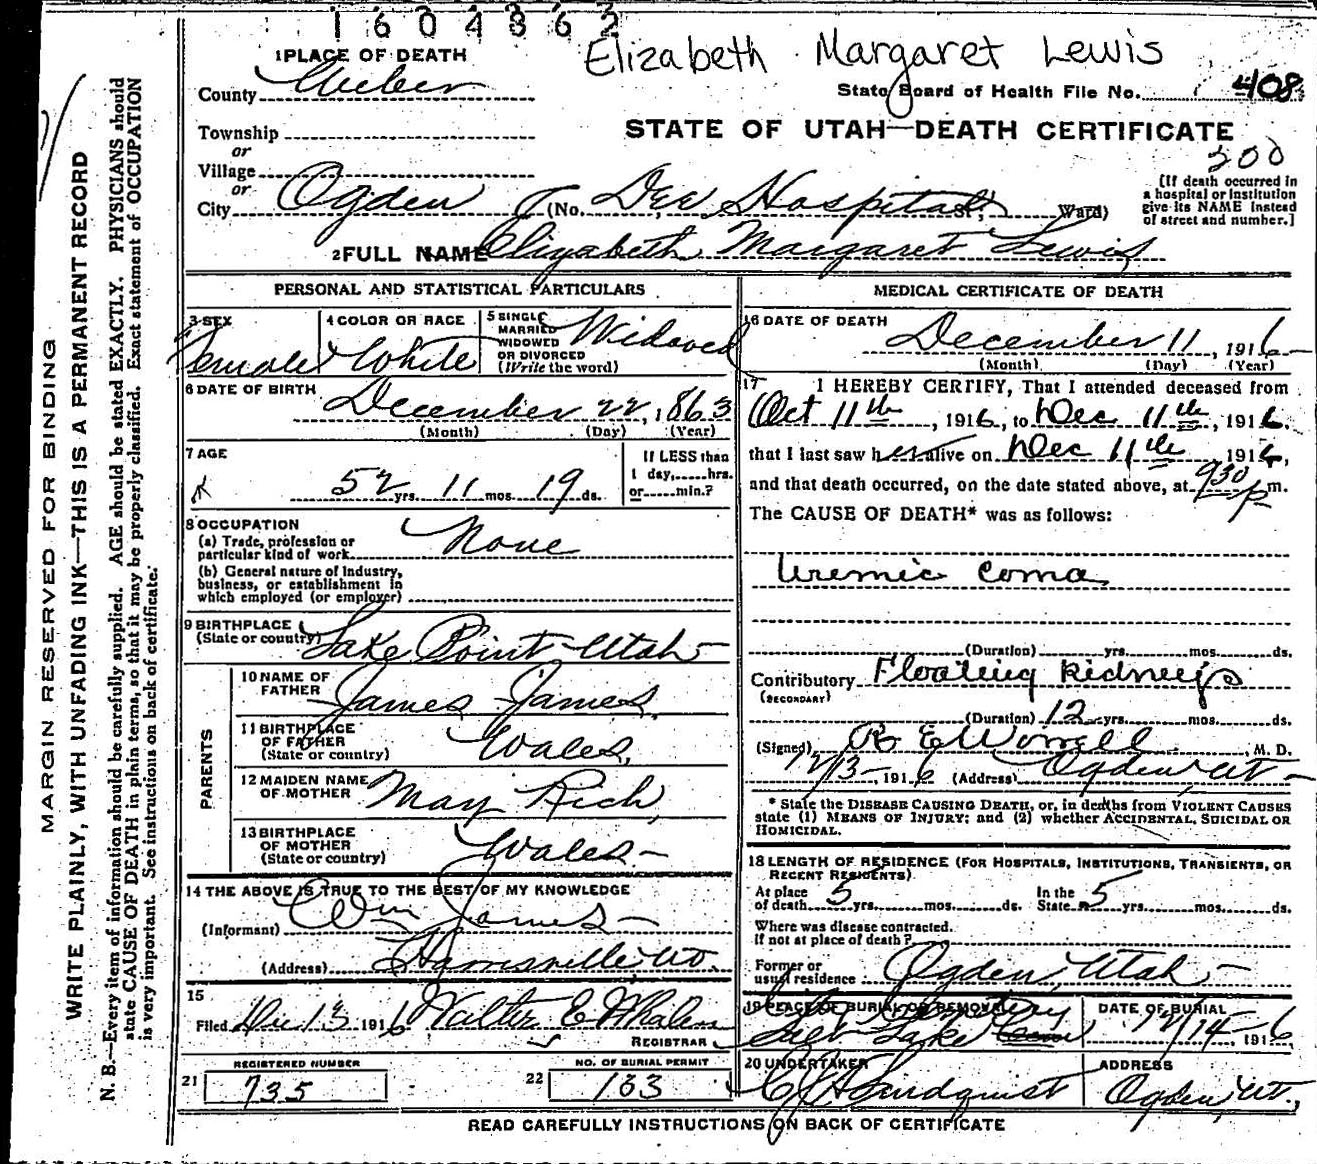 1604362
Elizabeth Margaret Lewis
1 PLACE OF DEATH
County Weber
State Board of Health File No. 408
Township
or
STATE OF UTAH—DEATH CERTIFICATE
200
Village
or
City Ogden (No. Dee Hospital St; Ward)
[If death occurred in
a hospital or institution
give its NAME instead
of street and number.]
2 FULL NAME Elizabeth Margaret Lewis
PERSONAL AND STATISTICAL PARTICULARS
3 SEX
Female
4 COLOR OR RACE
White
5 SINGLE
MARRIED
WIDOWED
OR DIVORCED
(Write the word)
Widowed
6 DATE OF BIRTH
December 22, 1863
(Month) (Day) (Year)
7 AGE
52 yrs. 11 mos. 19 ds.
If LESS than
1 day, hrs.
or min.?
8 OCCUPATION
(a) Trade, profession or
particular kind of work None
(b) General nature of industry,
business, or establishment in
which employed (or employer)
9 BIRTHPLACE
(State or country) Lake Point Utah
PARENTS
10 NAME OF
FATHER
James James
11 BIRTHPLACE
OF FATHER
(State or country)
Wales
12 MAIDEN NAME
OF MOTHER
May Rich
13 BIRTHPLACE
OF MOTHER
(State or country)
Wales
14 THE ABOVE IS TRUE TO THE BEST OF MY KNOWLEDGE
(Informant) Wm James
(Address) Harrisville, Ut.
15
Filed Dec 13 1916 Walter E Whalen
REGISTRAR
REGISTERED NUMBER
21 735
NO. OF BURIAL PERMIT
22 133
MEDICAL CERTIFICATE OF DEATH
16 DATE OF DEATH
December 11, 1916
(Month) (Day) (Year)
17 I HEREBY CERTIFY, That I attended deceased from
Oct 11th, 1916, to Dec 11th, 1916.
that I last saw her alive on Dec 11th, 1916,
and that death occurred, on the date stated above, at 9 30 p m.
The CAUSE OF DEATH* was as follows:
Uremic Coma
(Duration) yrs. mos. ds.
Contributory Floating Kidneys
(SECONDARY)
(Duration) 12 yrs. mos. ds.
(Signed) R E Worrell, M. D.
12/13 1916 (Address) Ogden, Ut
* State the DISEASE CAUSING DEATH, or, in deaths from VIOLENT CAUSES
state (1) MEANS OF INJURY; and (2) whether ACCIDENTAL, SUICIDAL OR
HOMICIDAL.
18 LENGTH OF RESIDENCE (FOR HOSPITALS, INSTITUTIONS, TRANSIENTS, OR
RECENT RESIDENTS)
At place
of death 5 yrs. mos. ds.
In the
State 5 yrs. mos. ds.
Where was disease contracted.
If not at place of death?
Former or
usual residence Ogden, Utah
19 PLACE OF BURIAL OR REMOVAL
City Cemetery
Salt Lake
DATE OF BURIAL
12/14 1916
20 UNDERTAKER
Lindquist
ADDRESS
Ogden, Ut.,
READ CAREFULLY INSTRUCTIONS ON BACK OF CERTIFICATE
MARGIN RESERVED FOR BINDING
WRITE PLAINLY, WITH UNFADING INK—THIS IS A PERMANENT RECORD
N. B.—Every item of information should be carefully supplied. AGE should be stated EXACTLY. PHYSICIANS should
state CAUSE OF DEATH in plain terms, so that it may be properly classified. Exact statement of OCCUPATION
is very important. See instructions on back of certificate.